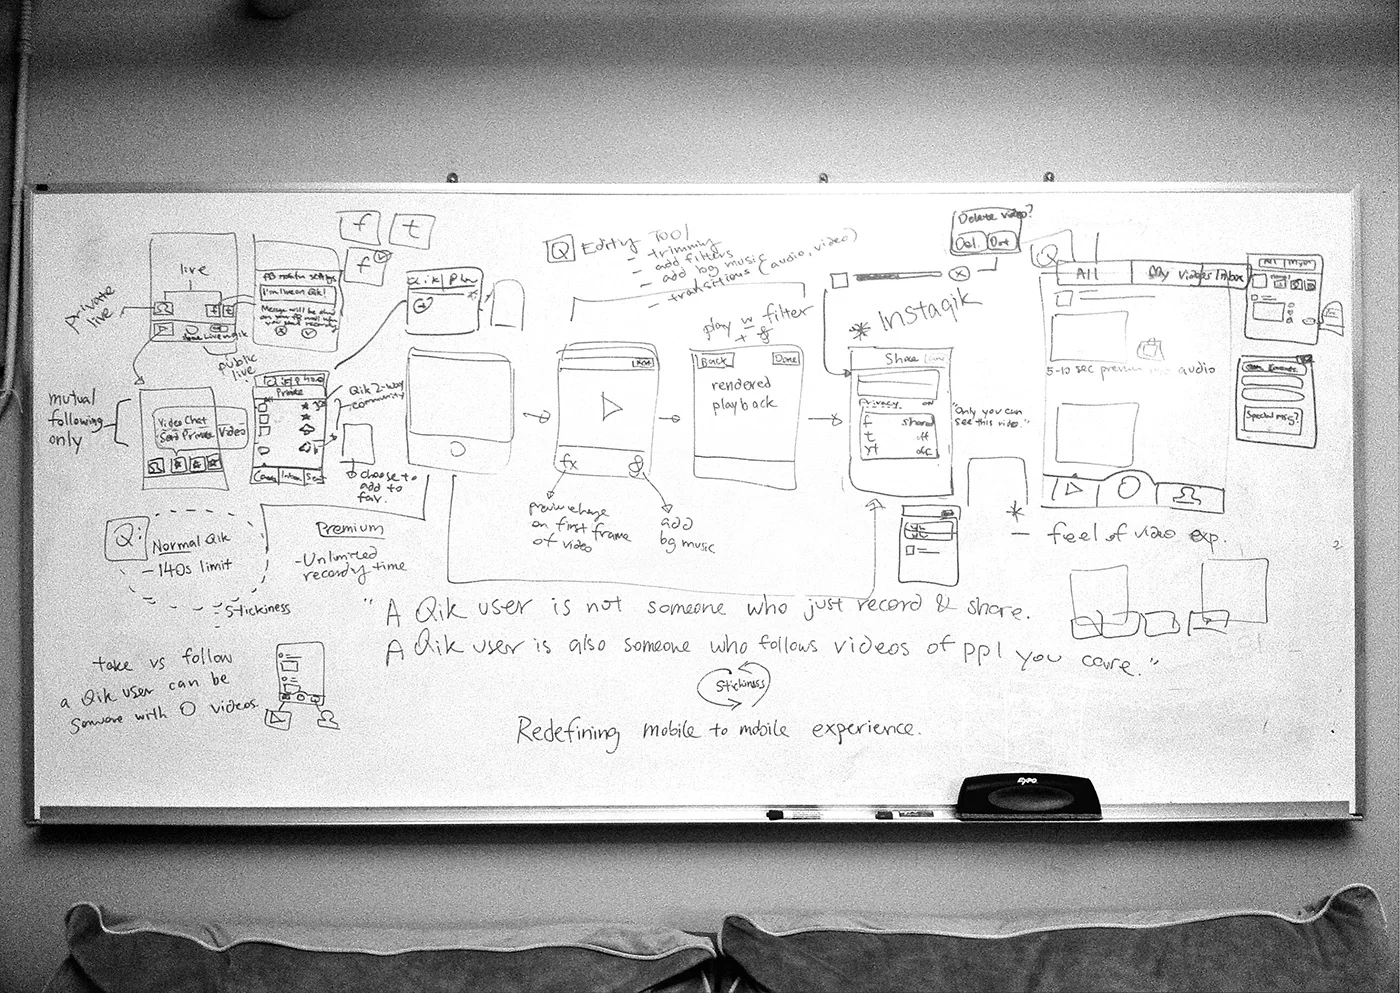 live
private
live
public
live
mutual
following
only
Video Chat
Send Private Video
FB notifn settings
I'm live on Qik!
Message will be
f
t
f
Private
All
Qik 2-way
community
choose to
add to
fav.
Q
Editing Tool
- trimming
- add filters
- add bg music
- transitions (audio, video)
play w filter
+
Back
Done
rendered
playback
fx
on first frame
of video
add
bg music
* Instaqik
Share
Privacy
on
f
shared
t
off
yt
off
"Only you can
see this video."
Delete video?
Del.
Q
All
My Videos
Inbox
5-10 sec
audio
Special msg?
*
- feel of video exp.
Q:
Normal Qik
- 140s limit
Stickiness
Premium
- Unlimited
recordg time
"A Qik user is not someone who just record & share.
A Qik user is also someone who follows videos of ppl you care."
Stickiness
Redefining mobile to mobile experience.
take vs follow
a Qik user can be
someone with 0 videos.
EXPO